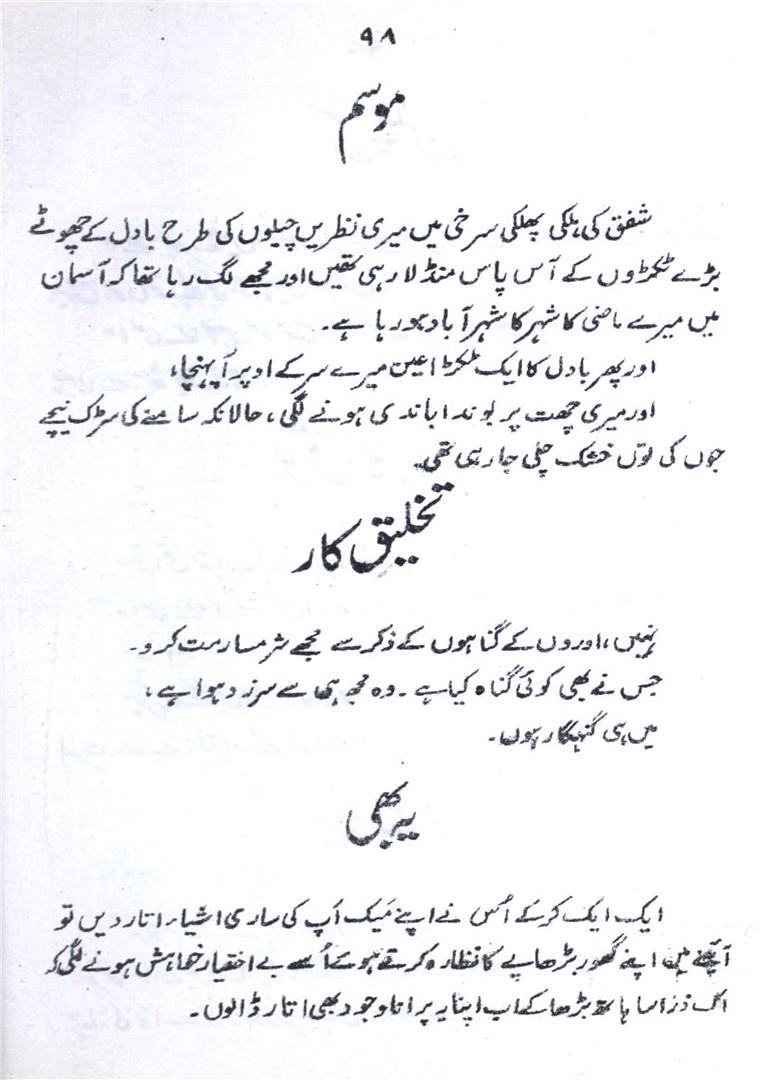 ۹۸
موسم
شفق کی ہلکی پھلکی سرخی میں میری نظریں چیلوں کی طرح بادل کے چھوٹے
بڑے ٹکڑوں کے آس پاس منڈلا رہی تھیں اور مجھے لگ رہا تھا کہ آسمان
میں میرے ماضی کا شہر کا شہر آباد ہو رہا ہے۔
اور پھر بادل کا ایک ٹکڑا عین میرے سر کے اوپر آ پہنچا،
اور میری چھت پر بوندا باندی ہونے لگی، حالانکہ سامنے کی سڑک نیچے
جوں کی توں خشک چلی جا رہی تھی۔
تخلیق کار
نہیں، اوروں کے گناہوں کے ذکر سے مجھے شرمسار مت کرو۔
جس نے بھی کوئی گناہ کیا ہے۔ وہ مجھ ہی سے سرزد ہوا ہے،
میں ہی گنہگار ہوں۔
یہ بھی
ایک ایک کر کے اُس نے اپنے میک اَپ کی ساری اشیاء اتار دیں تو
آئینے میں اپنے گھور بڑھاپے کا نظارہ کرتے ہوئے اُسے بے اختیار خواہش ہونے لگی کہ
اک ذرا سا ہاتھ بڑھا کے اب اپنا یہ پرانا وجود بھی اتار ڈالوں۔